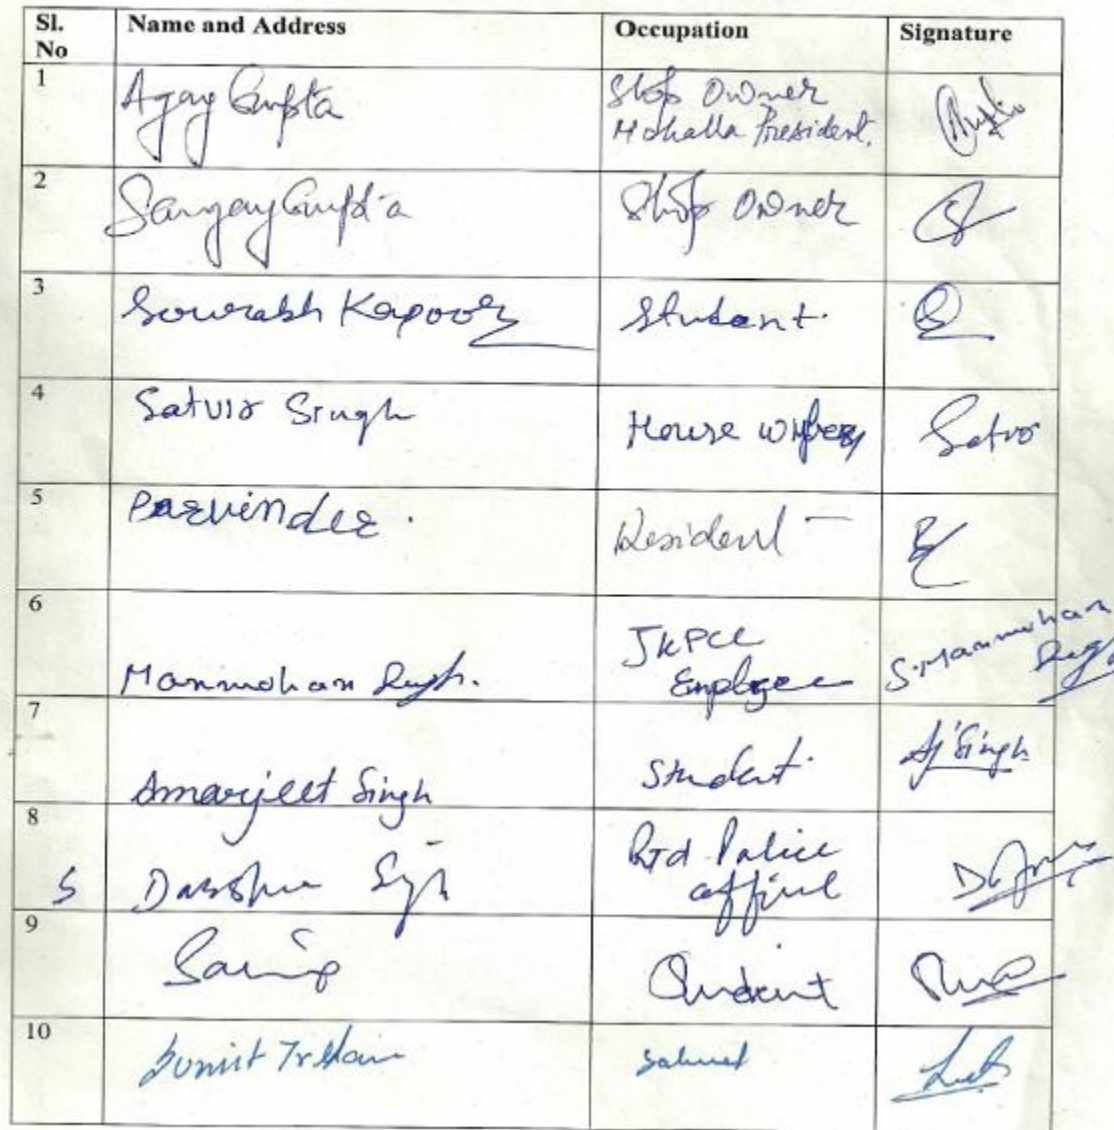 Sl. No Name and Address Occupation Signature
1 Ajay Gupta Shop Owner
Mohalla President.
2 Sanjay Gupta Shop Owner
3 Sourabh Kapoor Student.
4 Satvir Singh House Satvir
5 Parvinder. Resident -
6 JKPCC
Manmohan Singh. Employee S. Manmohan Singh
7 Amarjeet Singh Student. Aj Singh
8 Rtd Police
S Singh
9 Student
10 Sumit